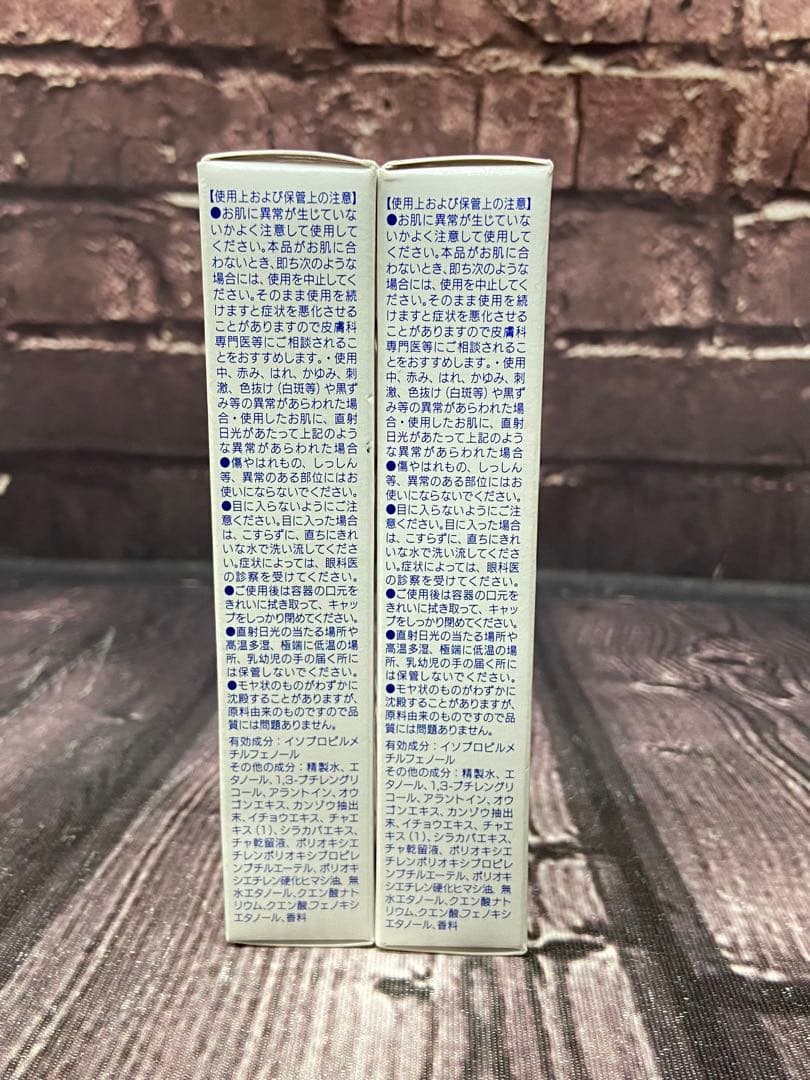 【使用上および保管上の注意】
●お肌に異常が生じていな
いかよく注意して使用して
ください。本品がお肌に合
わないとき、即ち次のような
場合には、使用を中止してく
ださい。そのまま使用を続
けますと症状を悪化させる
ことがありますので皮膚科
専門医等にご相談されるこ
とをおすすめします。・使用
中、赤み、はれ、かゆみ、刺
激、色抜け(白斑等)や黒ず
み等の異常があらわれた場
合・使用したお肌に、直射
日光があたって上記のよう
な異常があらわれた場合
●傷やはれもの、しっしん
等、異常のある部位にはお
使いにならないでください。
●目に入らないようにご注
意ください。目に入った場合
は、こすらずに、直ちにきれ
いな水で洗い流してくださ
い。症状によっては、眼科医
の診察を受けてください。
●ご使用後は容器の口元を
きれいに拭き取って、キャッ
プをしっかり閉めてください。
●直射日光の当たる場所や
高温多湿、極端に低温の場
所、乳幼児の手の届く所に
は保管しないでください。
●モヤ状のものがわずかに
沈殿することがありますが、
原料由来のものですので品
質には問題ありません。
有効成分：イソプロピルメ
チルフェノール
その他の成分：精製水、エ
タノール、1,3-ブチレングリ
コール、アラントイン、オウ
ゴンエキス、カンゾウ抽出
末、イチョウエキス、チャエ
キス(1)、シラカバエキス、
チャ乾留液、ポリオキシエ
チレンポリオキシプロピレ
ンブチルエーテル、ポリオキ
シエチレン硬化ヒマシ油、無
水エタノール、クエン酸ナト
リウム、クエン酸、フェノキシ
エタノール、香料
【使用上および保管上の注意】
●お肌に異常が生じていな
いかよく注意して使用して
ください。本品がお肌に合
わないとき、即ち次のような
場合には、使用を中止してく
ださい。そのまま使用を続
けますと症状を悪化させる
ことがありますので皮膚科
専門医等にご相談されるこ
とをおすすめします。・使用
中、赤み、はれ、かゆみ、刺
激、色抜け(白斑等)や黒ず
み等の異常があらわれた場
合・使用したお肌に、直射
日光があたって上記のよう
な異常があらわれた場合
●傷やはれもの、しっしん
等、異常のある部位にはお
使いにならないでください。
●目に入らないようにご注
意ください。目に入った場合
は、こすらずに、直ちにきれ
いな水で洗い流してくださ
い。症状によっては、眼科医
の診察を受けてください。
●ご使用後は容器の口元を
きれいに拭き取って、キャッ
プをしっかり閉めてください。
●直射日光の当たる場所や
高温多湿、極端に低温の場
所、乳幼児の手の届く所に
は保管しないでください。
●モヤ状のものがわずかに
沈殿することがありますが、
原料由来のものですので品
質には問題ありません。
有効成分：イソプロピルメ
チルフェノール
その他の成分：精製水、エ
タノール、1,3-ブチレングリ
コール、アラントイン、オウ
ゴンエキス、カンゾウ抽出
末、イチョウエキス、チャエ
キス(1)、シラカバエキス、
チャ乾留液、ポリオキシエ
チレンポリオキシプロピレ
ンブチルエーテル、ポリオキ
シエチレン硬化ヒマシ油、無
水エタノール、クエン酸ナト
リウム、クエン酸、フェノキシ
エタノール、香料